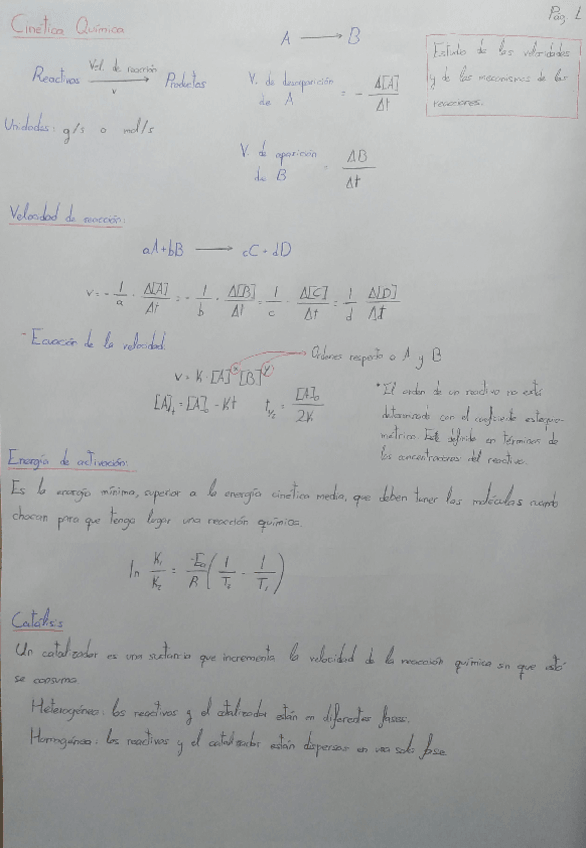 Pág. 1
Cinética Química
A → B
Estudio de las velocidades
y de los mecanismos de las
reacciones.
Reactivos Vel. de reacción v → Productos
V. de desaparición de A = - Δ[A]/Δt
Unidades: g/s o mol/s
V. de aparición de B = ΔB/Δt
Velocidad de reacción:
aA+bB → cC+dD
v = - 1/a · Δ[A]/Δt = - 1/b · Δ[B]/Δt = 1/c · Δ[C]/Δt = 1/d Δ[D]/Δt
- Ecuación de la velocidad
Órdenes respecto a A y B
v = K · [A]^x [B]^y
[A]t = [A]0 - Kt t½ = [A]0/2K
* El orden de un reactivo no está
determinado con el coeficiente estequio-
métrico. Está definido en términos de
las concentraciones del reactivo.
Energía de activación:
Es la energía mínima, superior a la energía cinética media, que deben tener las moléculas cuando
chocan para que tenga lugar una reacción química.
ln K1/K2 = -Ea/R (1/T2 - 1/T1)
Catálisis
Un catalizador es una sustancia que incrementa la velocidad de la reacción química sin que está
se consuma
Heterogéneo: los reactivos y el catalizador están en diferentes fases.
Homogénea: los reactivos y el catalizador están dispersos en una sola fase